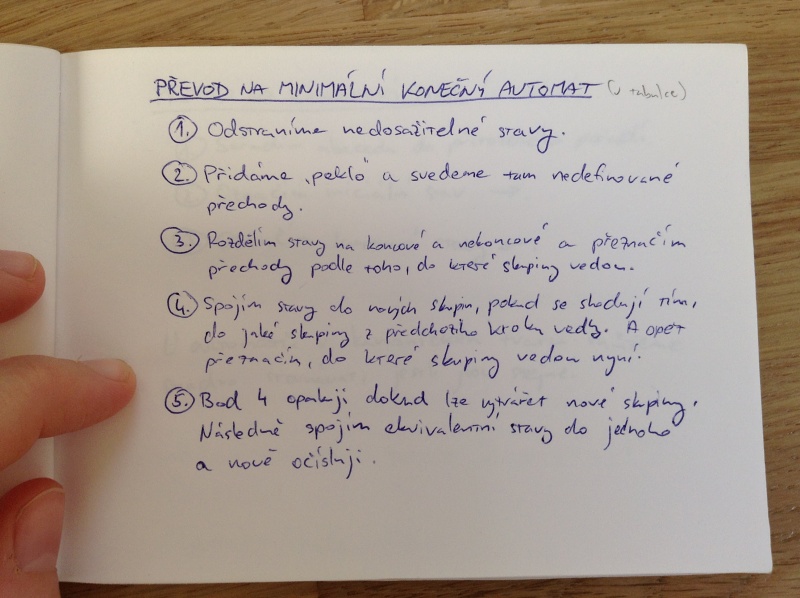 PŘEVOD NA MINIMÁLNÍ KONEČNÝ AUTOMAT (v tabulce)
1. Odstraníme nedosažitelné stavy.
2. Přidáme „peklo“ a svedeme tam nedefinované
přechody.
3. Rozdělím stavy na koncové a nekoncové a přeznačím
přechody podle toho, do které skupiny vedou.
4. Spojím stavy do nových skupin, pokud se shodují tím,
do jaké skupiny z předchozího kroku vedly. A opět
přeznačím, do které skupiny vedou nyní.
5. Bod 4 opakuji dokud lze vytvářet nové skupiny.
Následně spojím ekvivalentní stavy do jednoho
a nově očísluji.